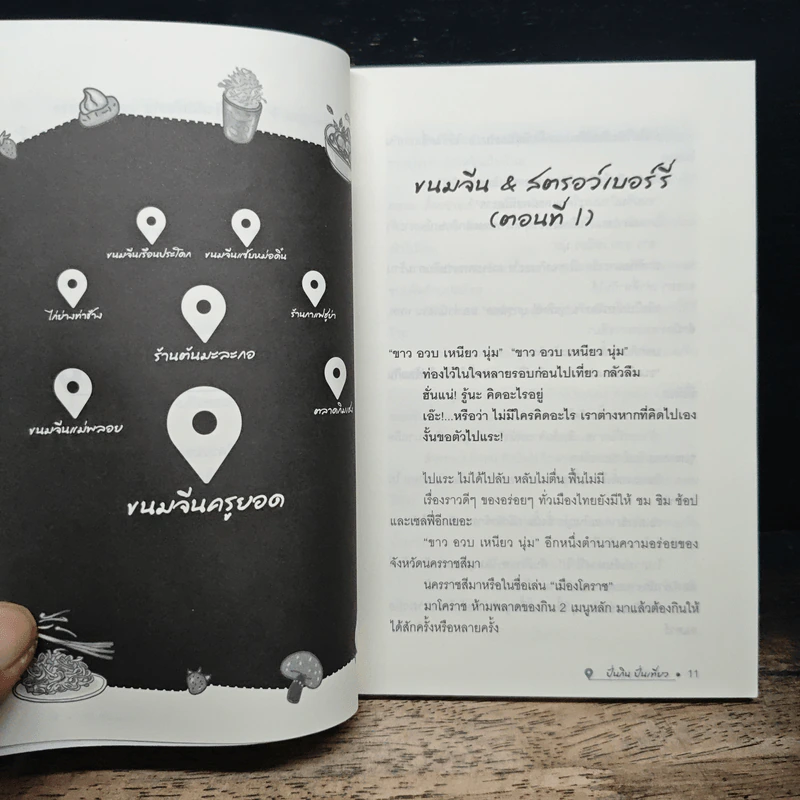 ขนมจีนเรือนประโดก
ขนมจีนแซ่บหม่อดิ้น
ไก่ย่างท่าช้าง
ร้านต้นมะละกอ
ขนมจีนแม่พลอย
ขนมจีนครูยอด
ขนมจีน & สตรอว์เบอร์รี่
(ตอนที่ 1)
“ขาว อวบ เหนียว นุ่ม” “ขาว อวบ เหนียว นุ่ม”
ท่องไว้ในใจหลายรอบก่อนไปเที่ยว กลัวลืม
ฮั่นแน่! รู้นะ คิดอะไรอยู่
เอ๊ะ!...หรือว่า ไม่มีใครคิดอะไร เราต่างหากที่คิดไปเอง
งั้นขอตัวไปแระ!
ไปแระ ไม่ได้ไปลับ หลับไม่ตื่น ฟื้นไม่มี
เรื่องราวดีๆ ของอร่อยๆ ทั่วเมืองไทยยังมีให้ ชม ชิม ช้อป
และเซลฟี่อีกเยอะ
“ขาว อวบ เหนียว นุ่ม” อีกหนึ่งตำนานความอร่อยของ
จังหวัดนครราชสีมา
นครราชสีมาหรือในชื่อเล่น “เมืองโคราช”
มาโคราช ห้ามพลาดของกิน 2 เมนูหลัก มาแล้วต้องกินให้
ได้สักครั้งหรือหลายครั้ง
ปั่นกิน ปั่นเที่ยว • 11